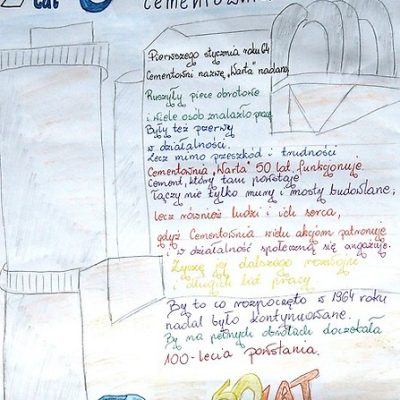 lat
cementowni
Pierwszego stycznia roku 64
Cementowni nazwę „Warta" nadano,
Ruszyły piece obrotowe
i wiele osób znalazło pracę
Były też przerwy
w działalności.
Lecz mimo przeszkód i trudności
Cementownia „Warta" 50 lat funkcjonuje.
Cement, który tam powstaje
łączy nie tylko mury i mosty budowlane;
lecz również ludzi i ich serca,
gdyż Cementownia wielu akcjom patronuje
i w działalność społeczną się angażuje.
Życzę jej dalszego rozwoju
i długich lat pracy
By to co rozpoczęto w 1964 roku
nadal było kontynuowane.
By na pełnych obrotach doczekała
100-lecia powstania.
50 LAT